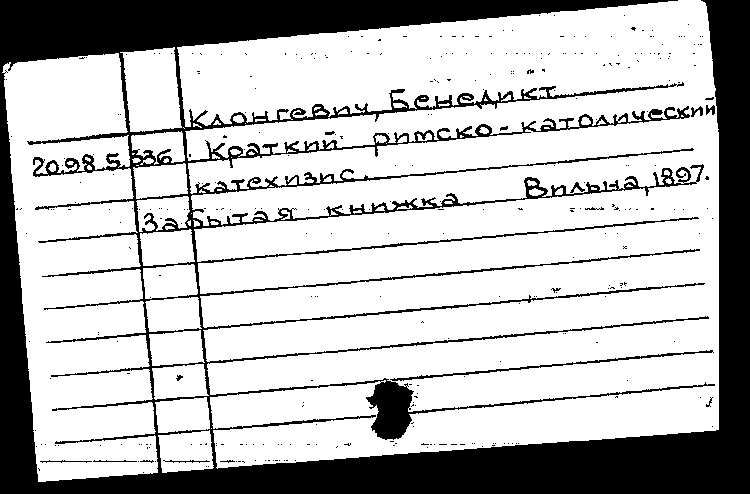 Клонгевич, Бенедикт
20.98.5.336. Краткий римско-католический
катехизис.
Забытая книжка. Вильна, 1897.